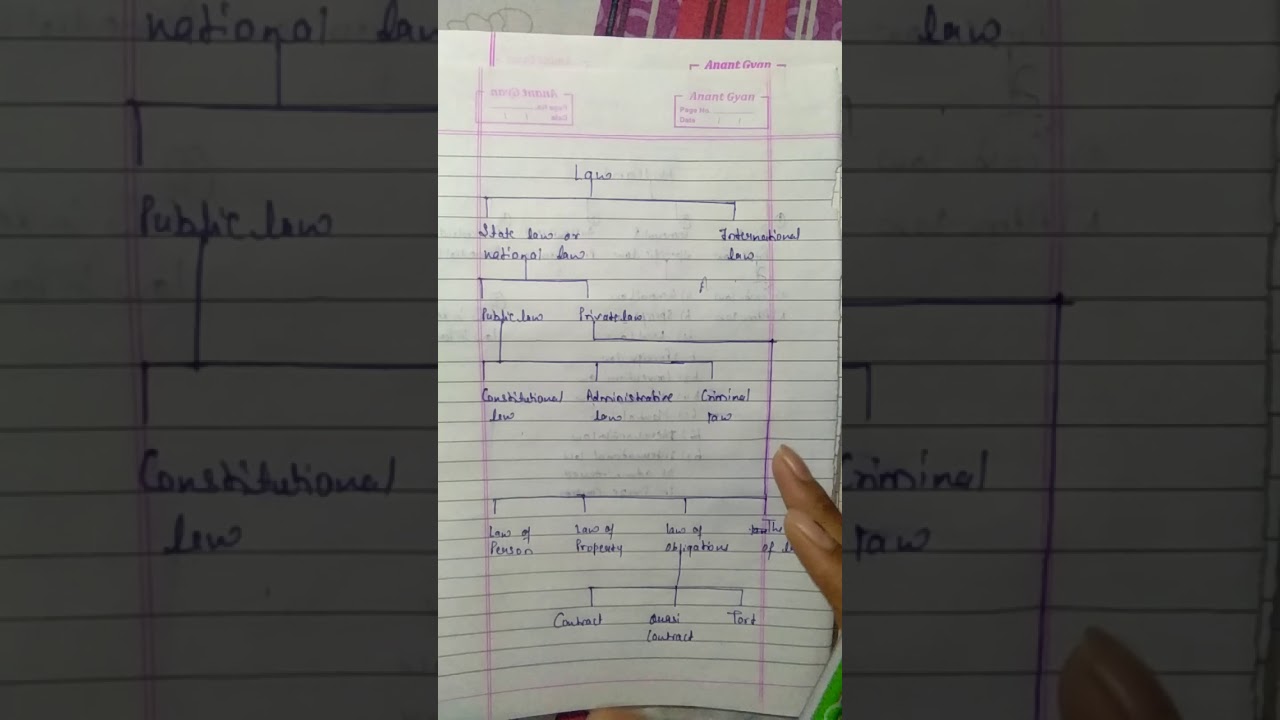 Anant Gyan
Anant Gyan
Page No.
Date
Law
State law or
national law
International
law
Public law
Private law
Constitutional
law
Administrative
law
Criminal
law
Law of
Person
Law of
Property
Law of
obligations
The
of
Contract
Quasi
Contract
Tort
national law
law
Public law
Constitutional
law
Criminal
law